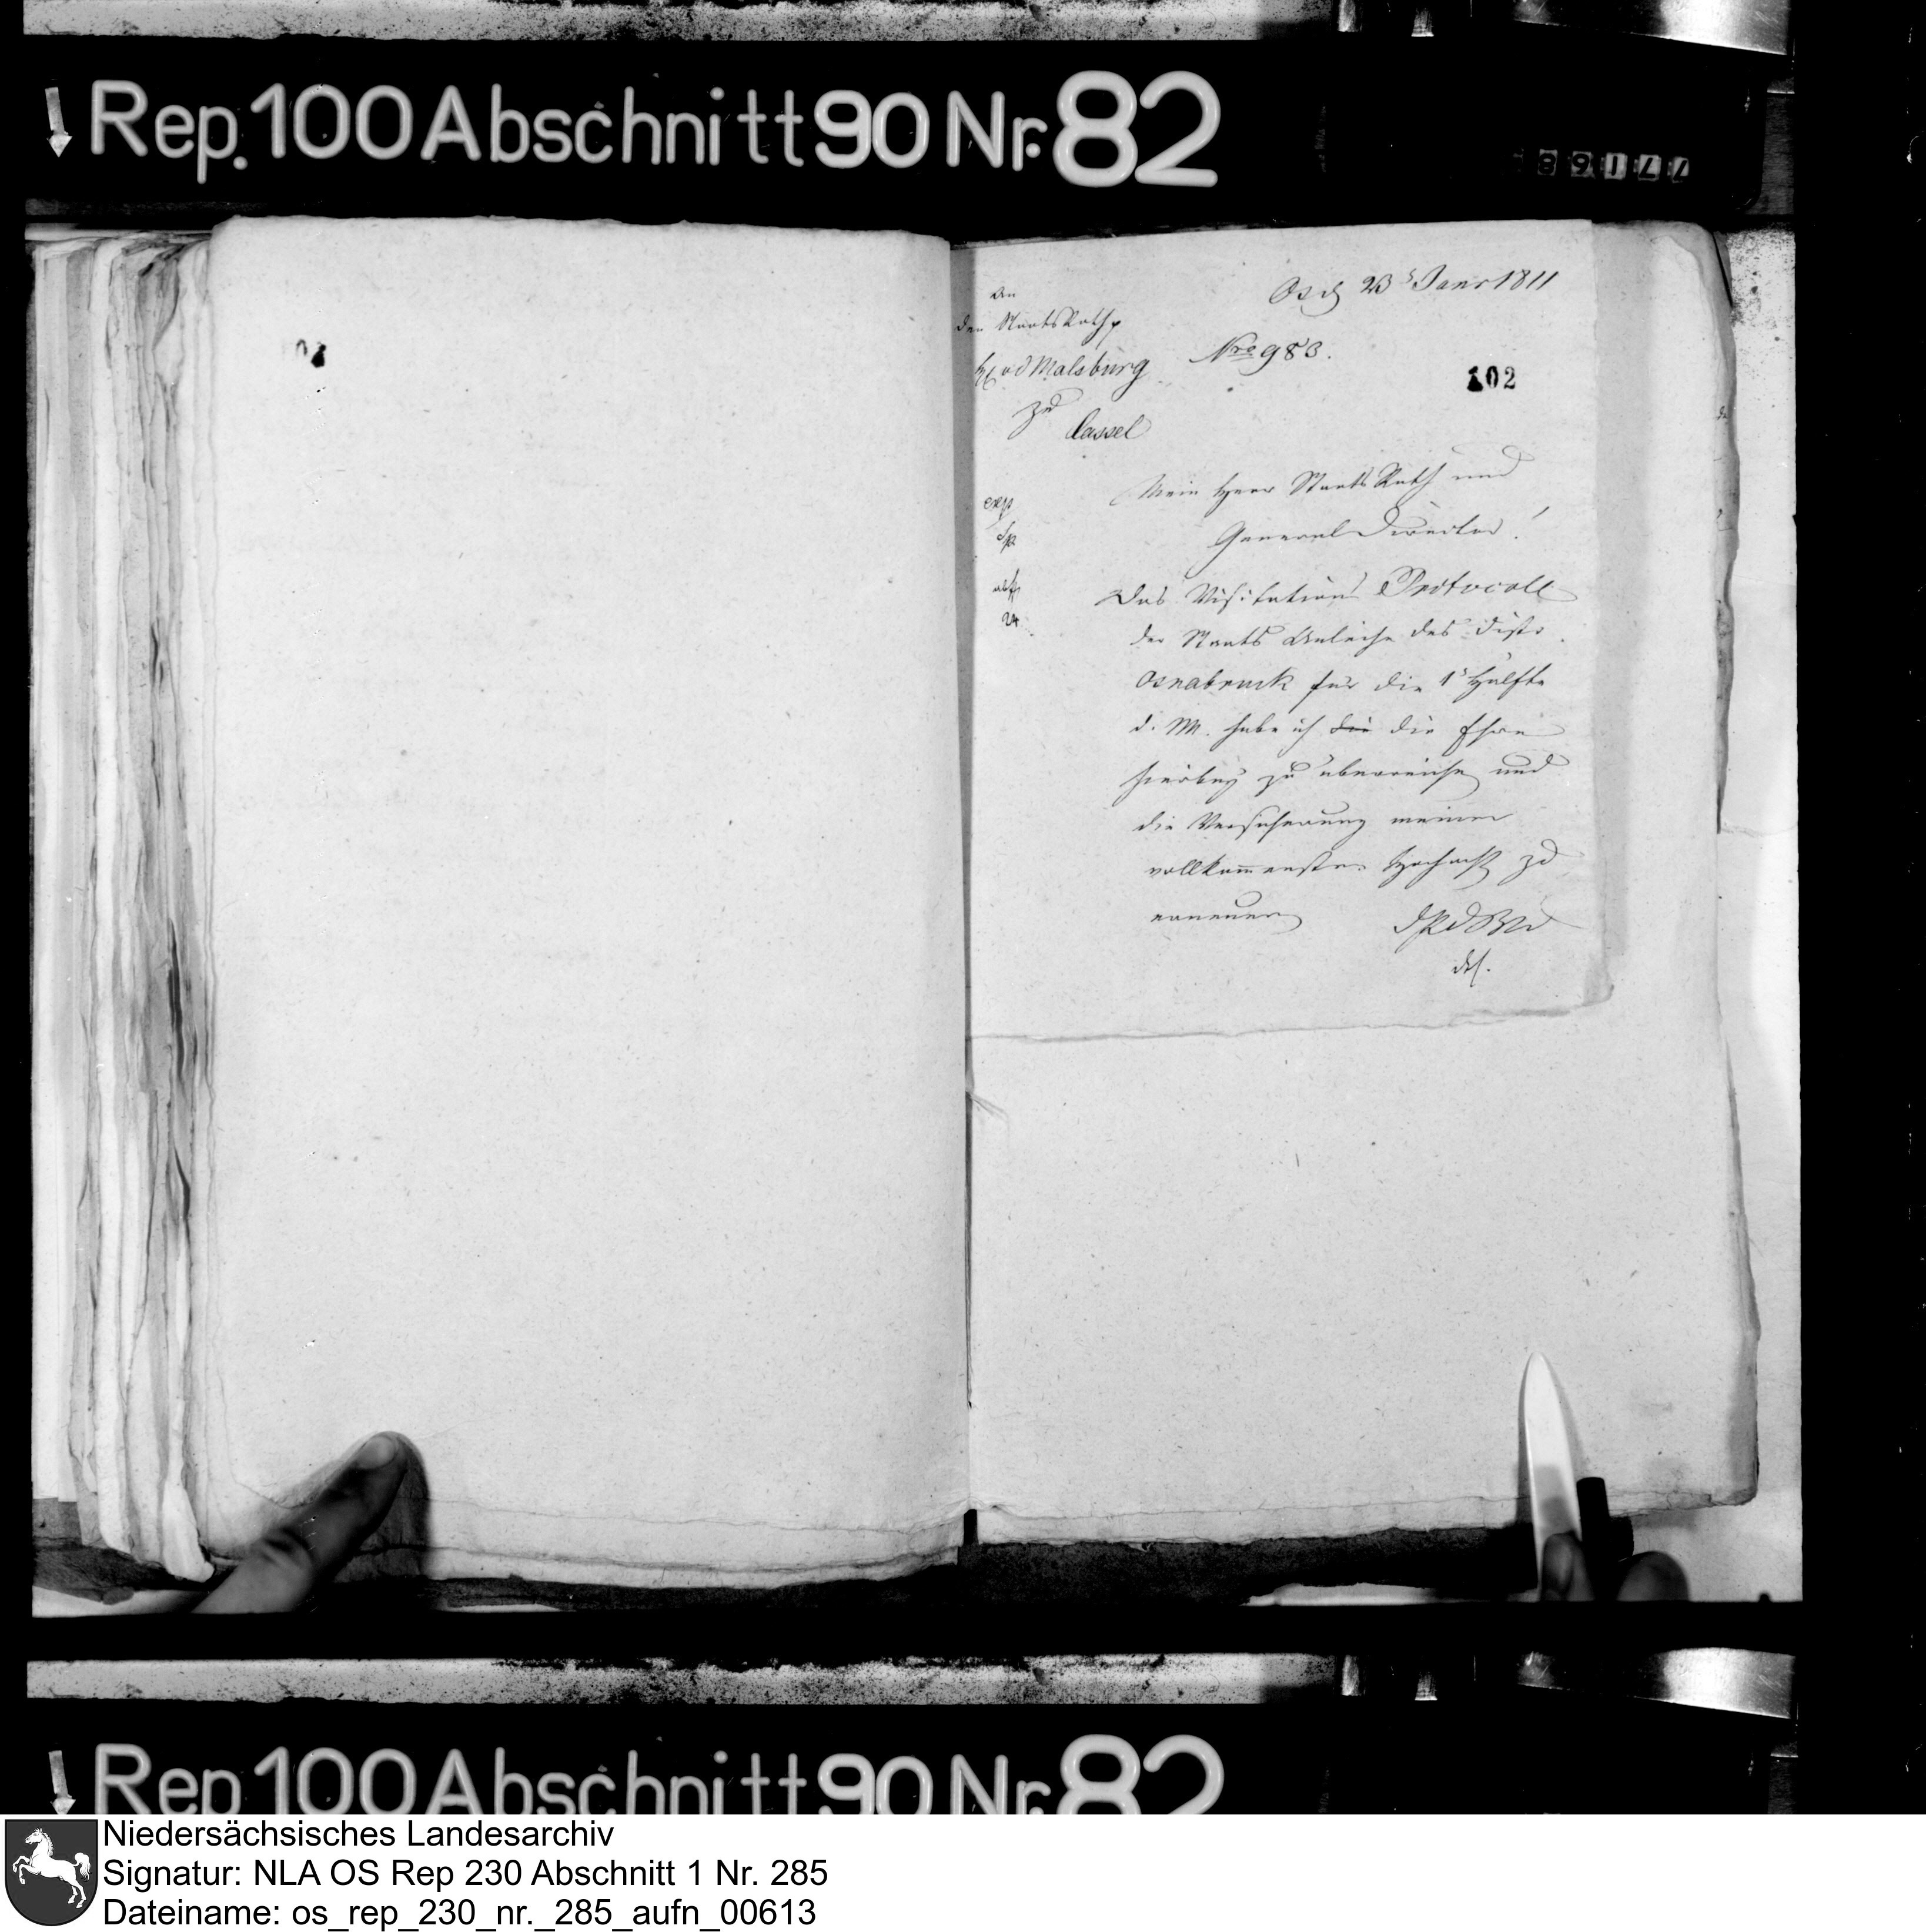 Rep. 100 Abschnitt 90 Nr. 82
89177
Osn 23 Janr 1811
An
den StaatsRath
H. v d Malsburg
zu
Cassel
Nro 983.
102
exp
abg
24
Mein Herr Staats Rath und
General Director!
Das Visitations Protocoll
der Staats Anleihe des Distr.
Osnabruck für die 1s Hälfte
d. M. habe ich die die Ehre
hierbey zu überreichen und
die Versicherung meiner
vollkommensten Hochacht zu
erneuern
Rep. 100 Abschnitt 90 Nr. 82
Niedersächsisches Landesarchiv
Signatur: NLA OS Rep 230 Abschnitt 1 Nr. 285
Dateiname: os_rep_230_nr._285_aufn_00613